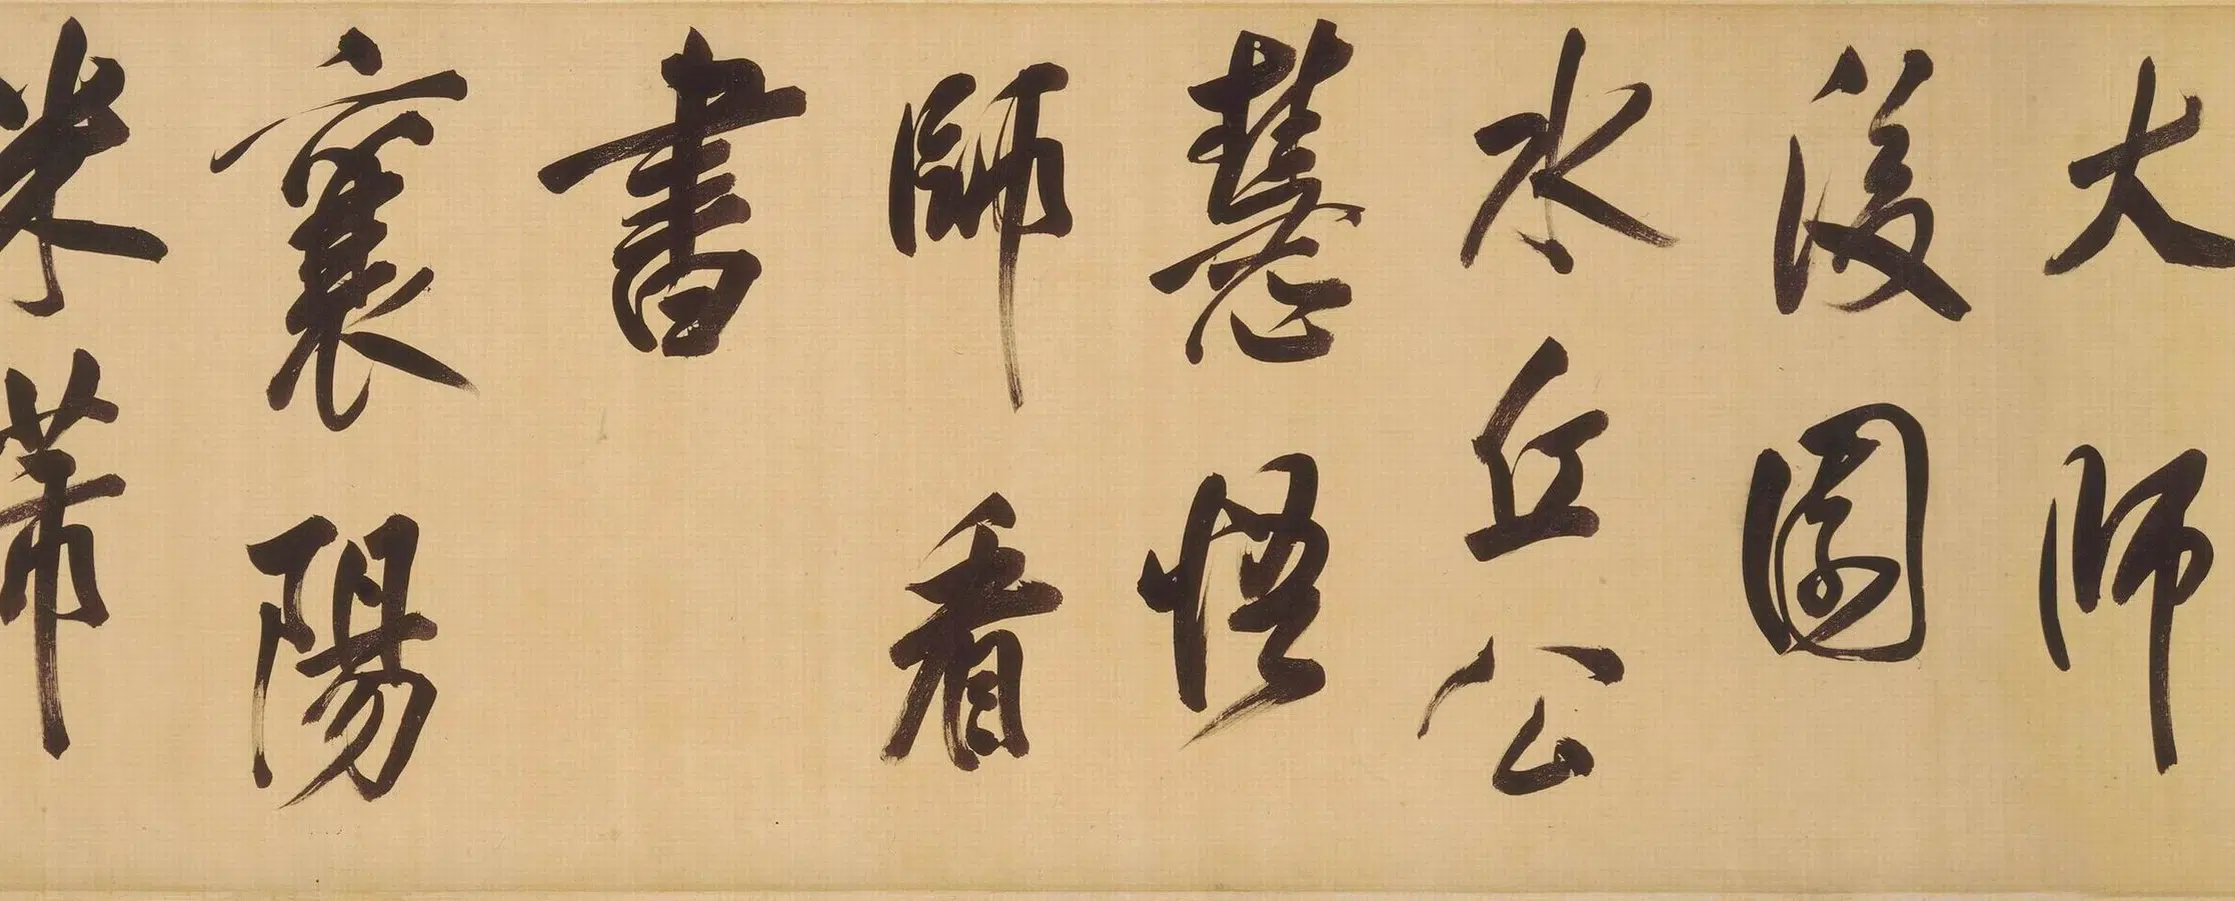 大師
後園
水丘公
慧悟
師看
書
襄陽
米芾